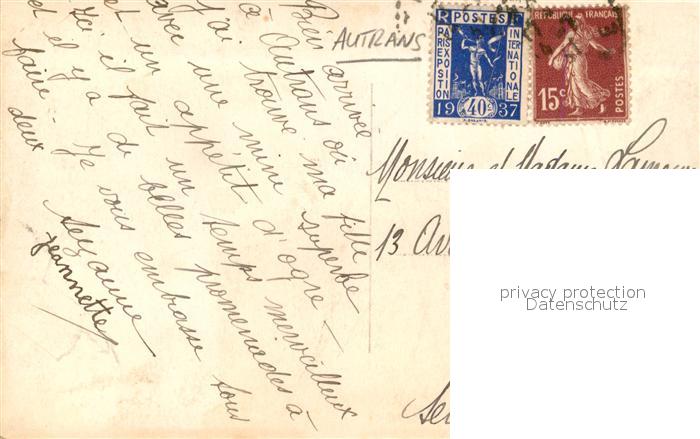 Bien arrivée
à Autrans où
j'ai trouvé ma fille
avec une mine superbe
et un appétit d'ogre -
Ici il fait un temps merveilleux
et il y a de belles promenades à
faire - Je vous embrasse tous
deux
Suzanne
Jeannette
AUTRANS
RF POSTES
PARIS EXPOSITION
INTERNATIONALE
1937
40c
RÉPUBLIQUE FRANÇAISE
15c
POSTES
Monsieur et Madame
13 Av
privacy protection
Datenschutz